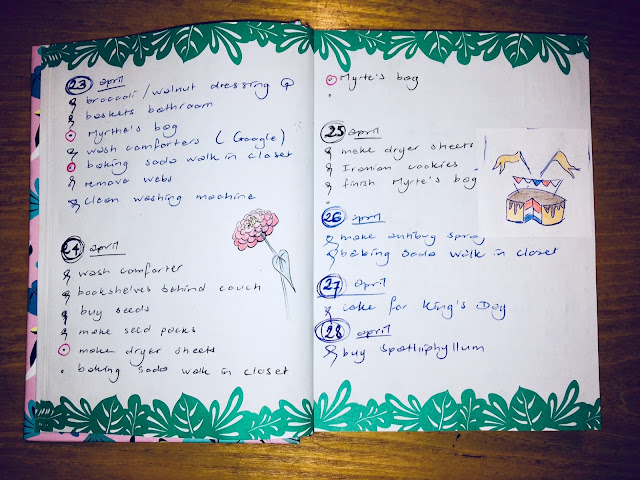 23 april
brocooli/walnut dressing
baskets bathroom
Myrthe's bag
wash comforters (Google)
baking soda walk in closet
remove webs
clean washing machine
24 april
wash comforter
bookshelves behind couch
buy seeds
make seed packs
make dryer sheets
baking soda walk in closet
Myrte's bag
25 april
make dryer sheets
Iranian cookies
finish Myrte's bag
26 april
make antibug spray
baking soda walk in closet
27 april
cake for King's Day
28 april
buy spathiphyllum